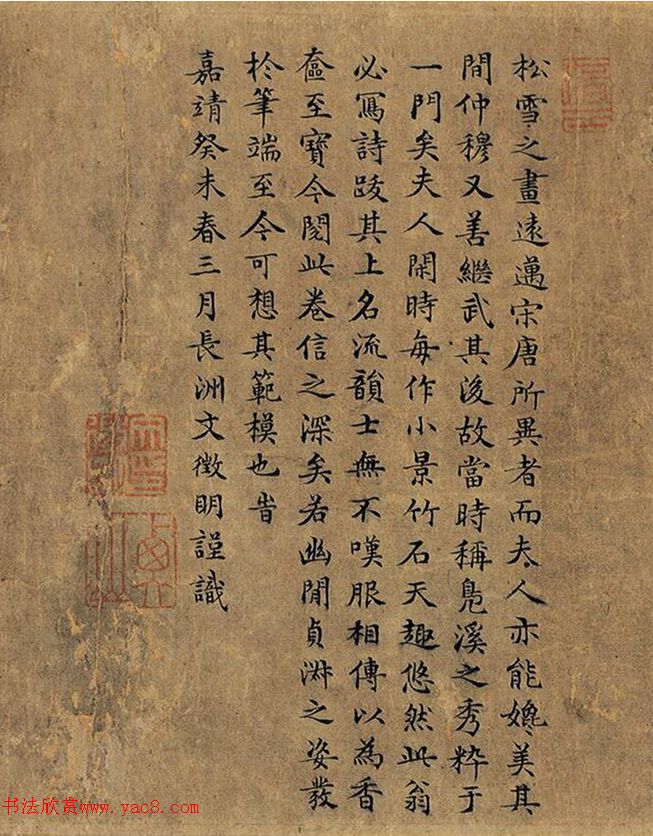 松雪之畫遠邁宋唐所異者而夫人亦能媲美其
間仲穆又善繼武其後故當時稱鳧溪之秀粹于
一門矣夫人閑時每作小景竹石天趣悠然此翁
必寫詩跋其上名流韻士無不嘆服相傳以為香
奩至寶今閱此卷信之深矣若幽閒貞淋之姿發
於筆端至今可想其範模也旹
嘉靖癸未春三月長洲文徵明謹識
书法欣赏www.yac8.com